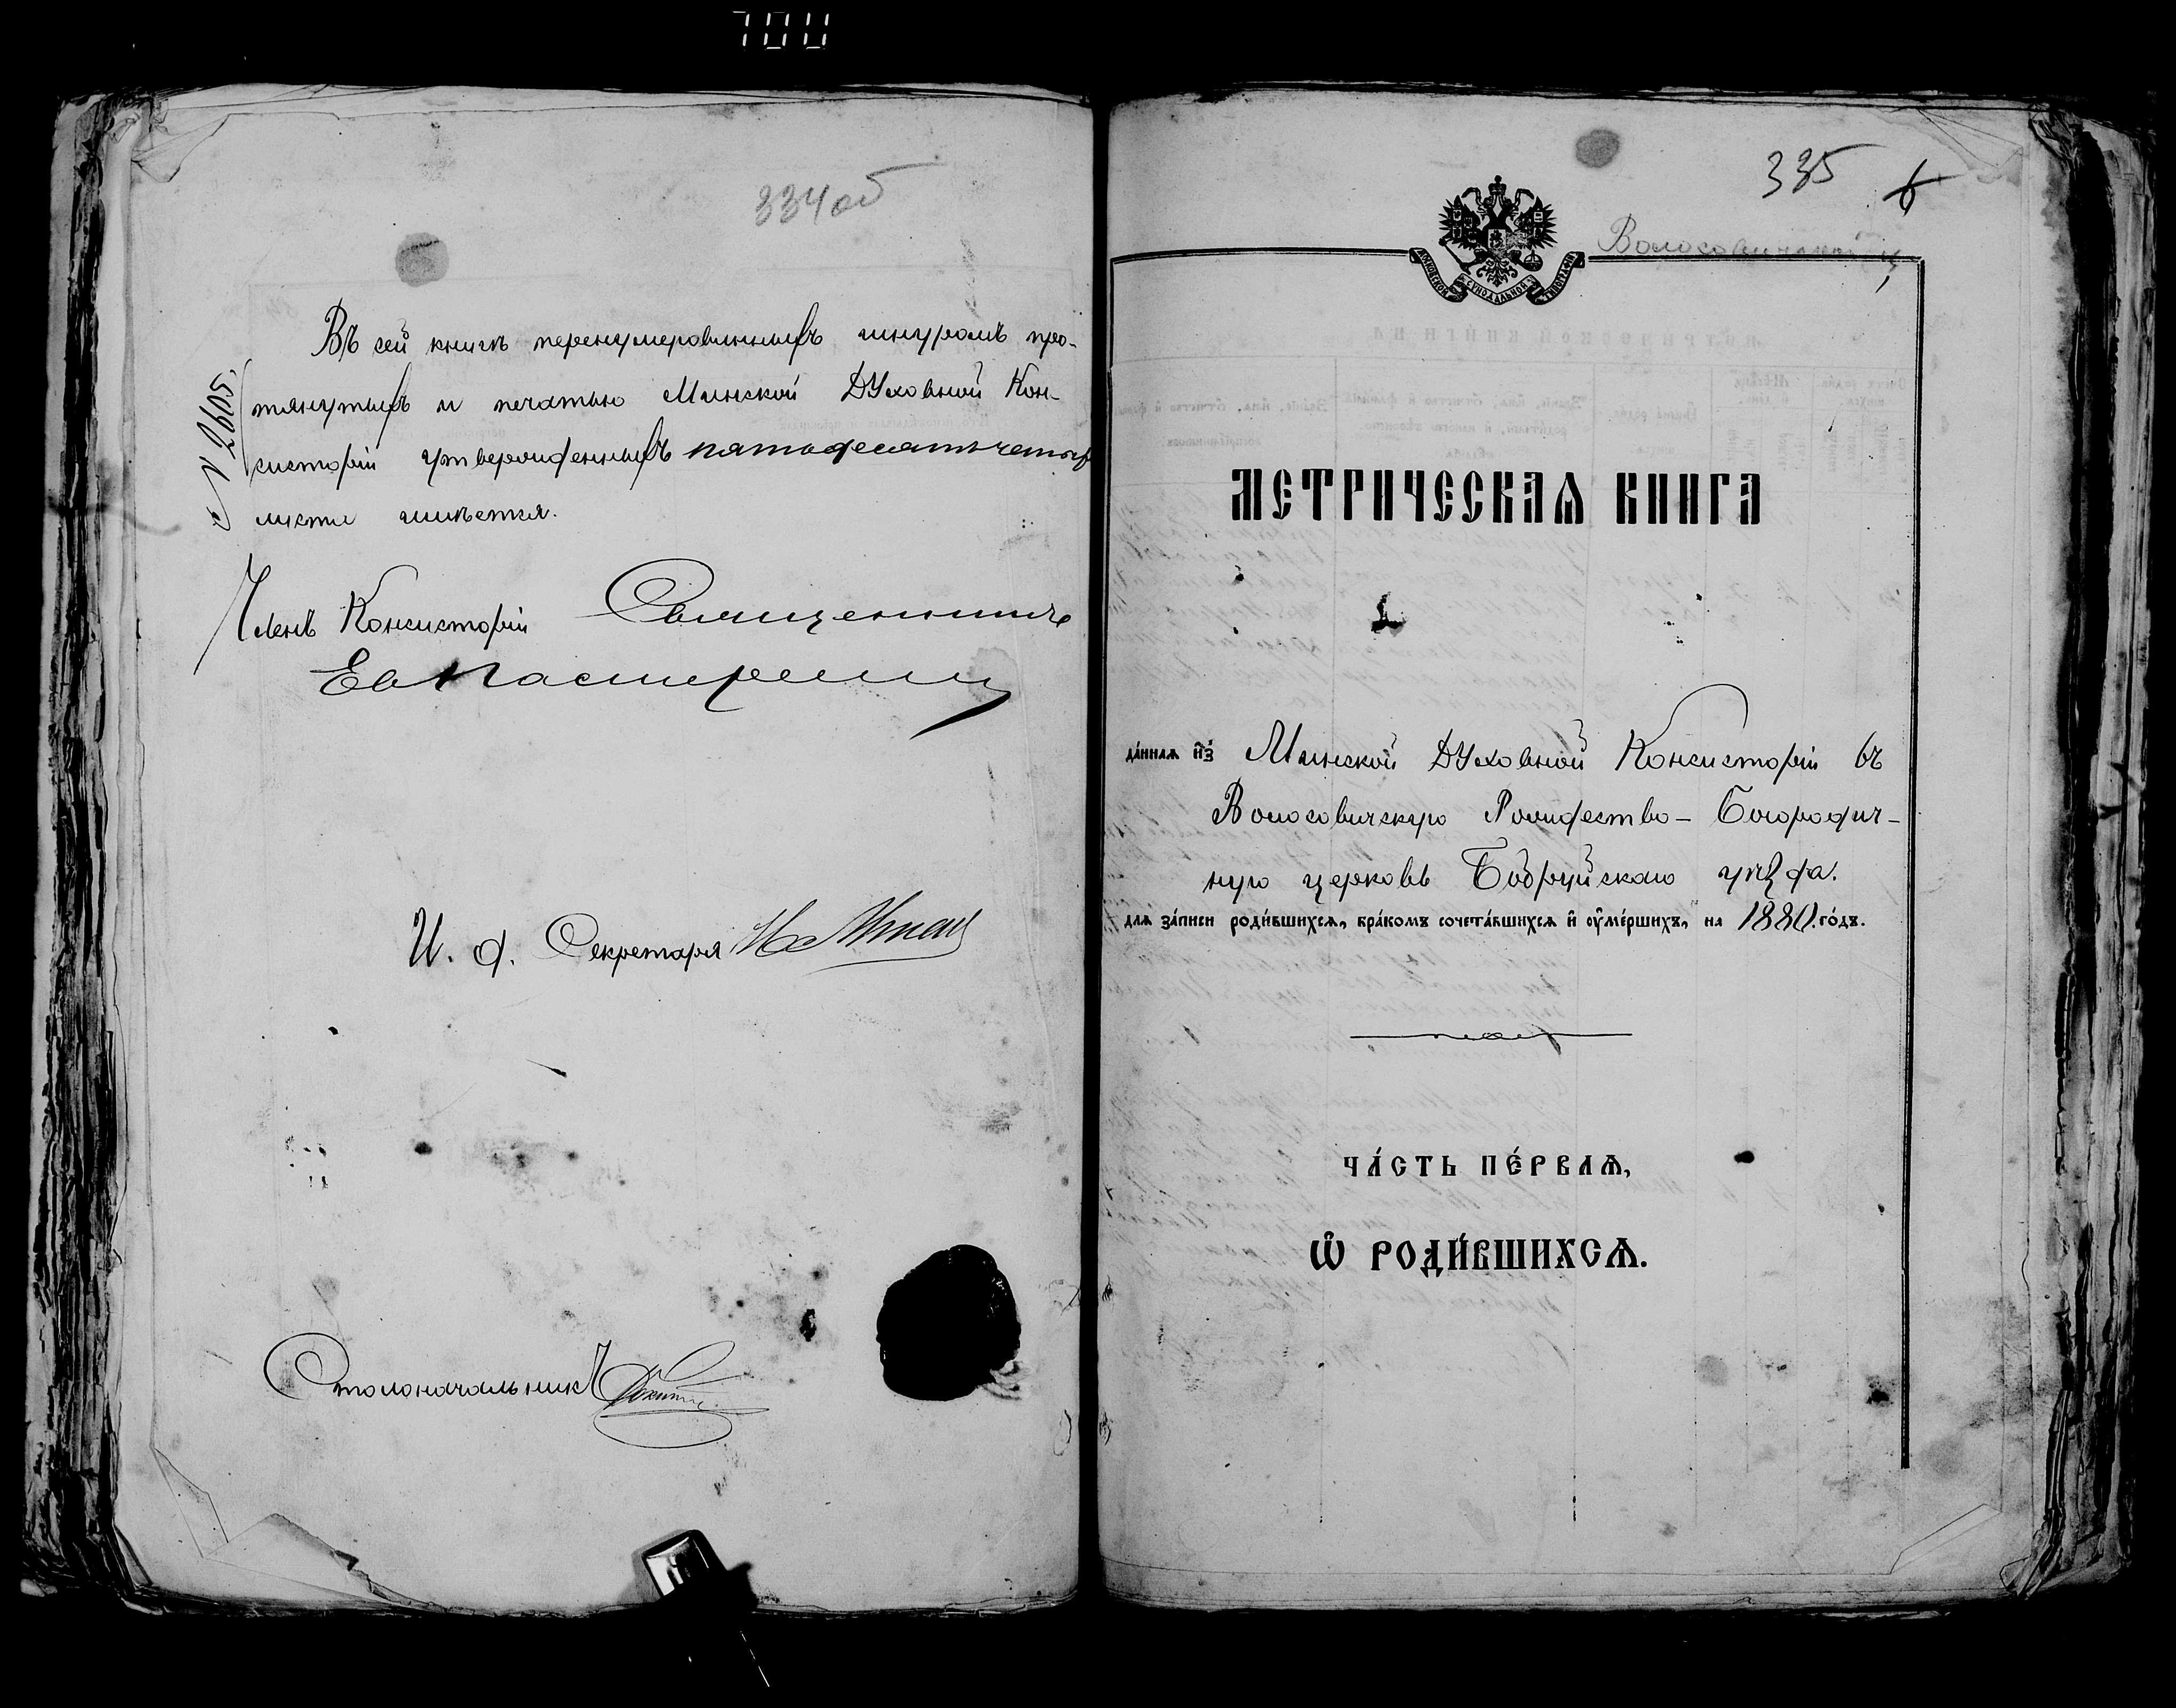 700
334об
Въ сей книгѣ перенумерованныхъ шнуромъ про-
тянутыхъ и печатью Минской Духовной Кон-
систоріи утвержденныхъ пятьдесятъ четыре
листа имѣется.
№ 2605.
Членъ Консисторіи Священникъ
И. д. Секретаря
Столоначальникъ
335
6
Волосовичской ц.
МОСКОВСКОЙ СѴНОДАЛЬНОЙ ТИПОГРАФІИ
МЕТРИЧЕСКАѦ КНИГА
да́ннаѧ и҆з̾ Минской Духовной Консисторіи въ
Волосовичскую Рождество-Богородич-
ную церковь Бобруйскаго уѣзда.
длѧ за́писи роди́вшихсѧ, бра́комъ сочета́вшихсѧ и҆ ᲂу҆ме́ршихъ, на 1880. го́дъ.
ЧА́СТЬ ПЕ́РВАѦ,
Ѽ РОДИ́ВШИХСѦ.